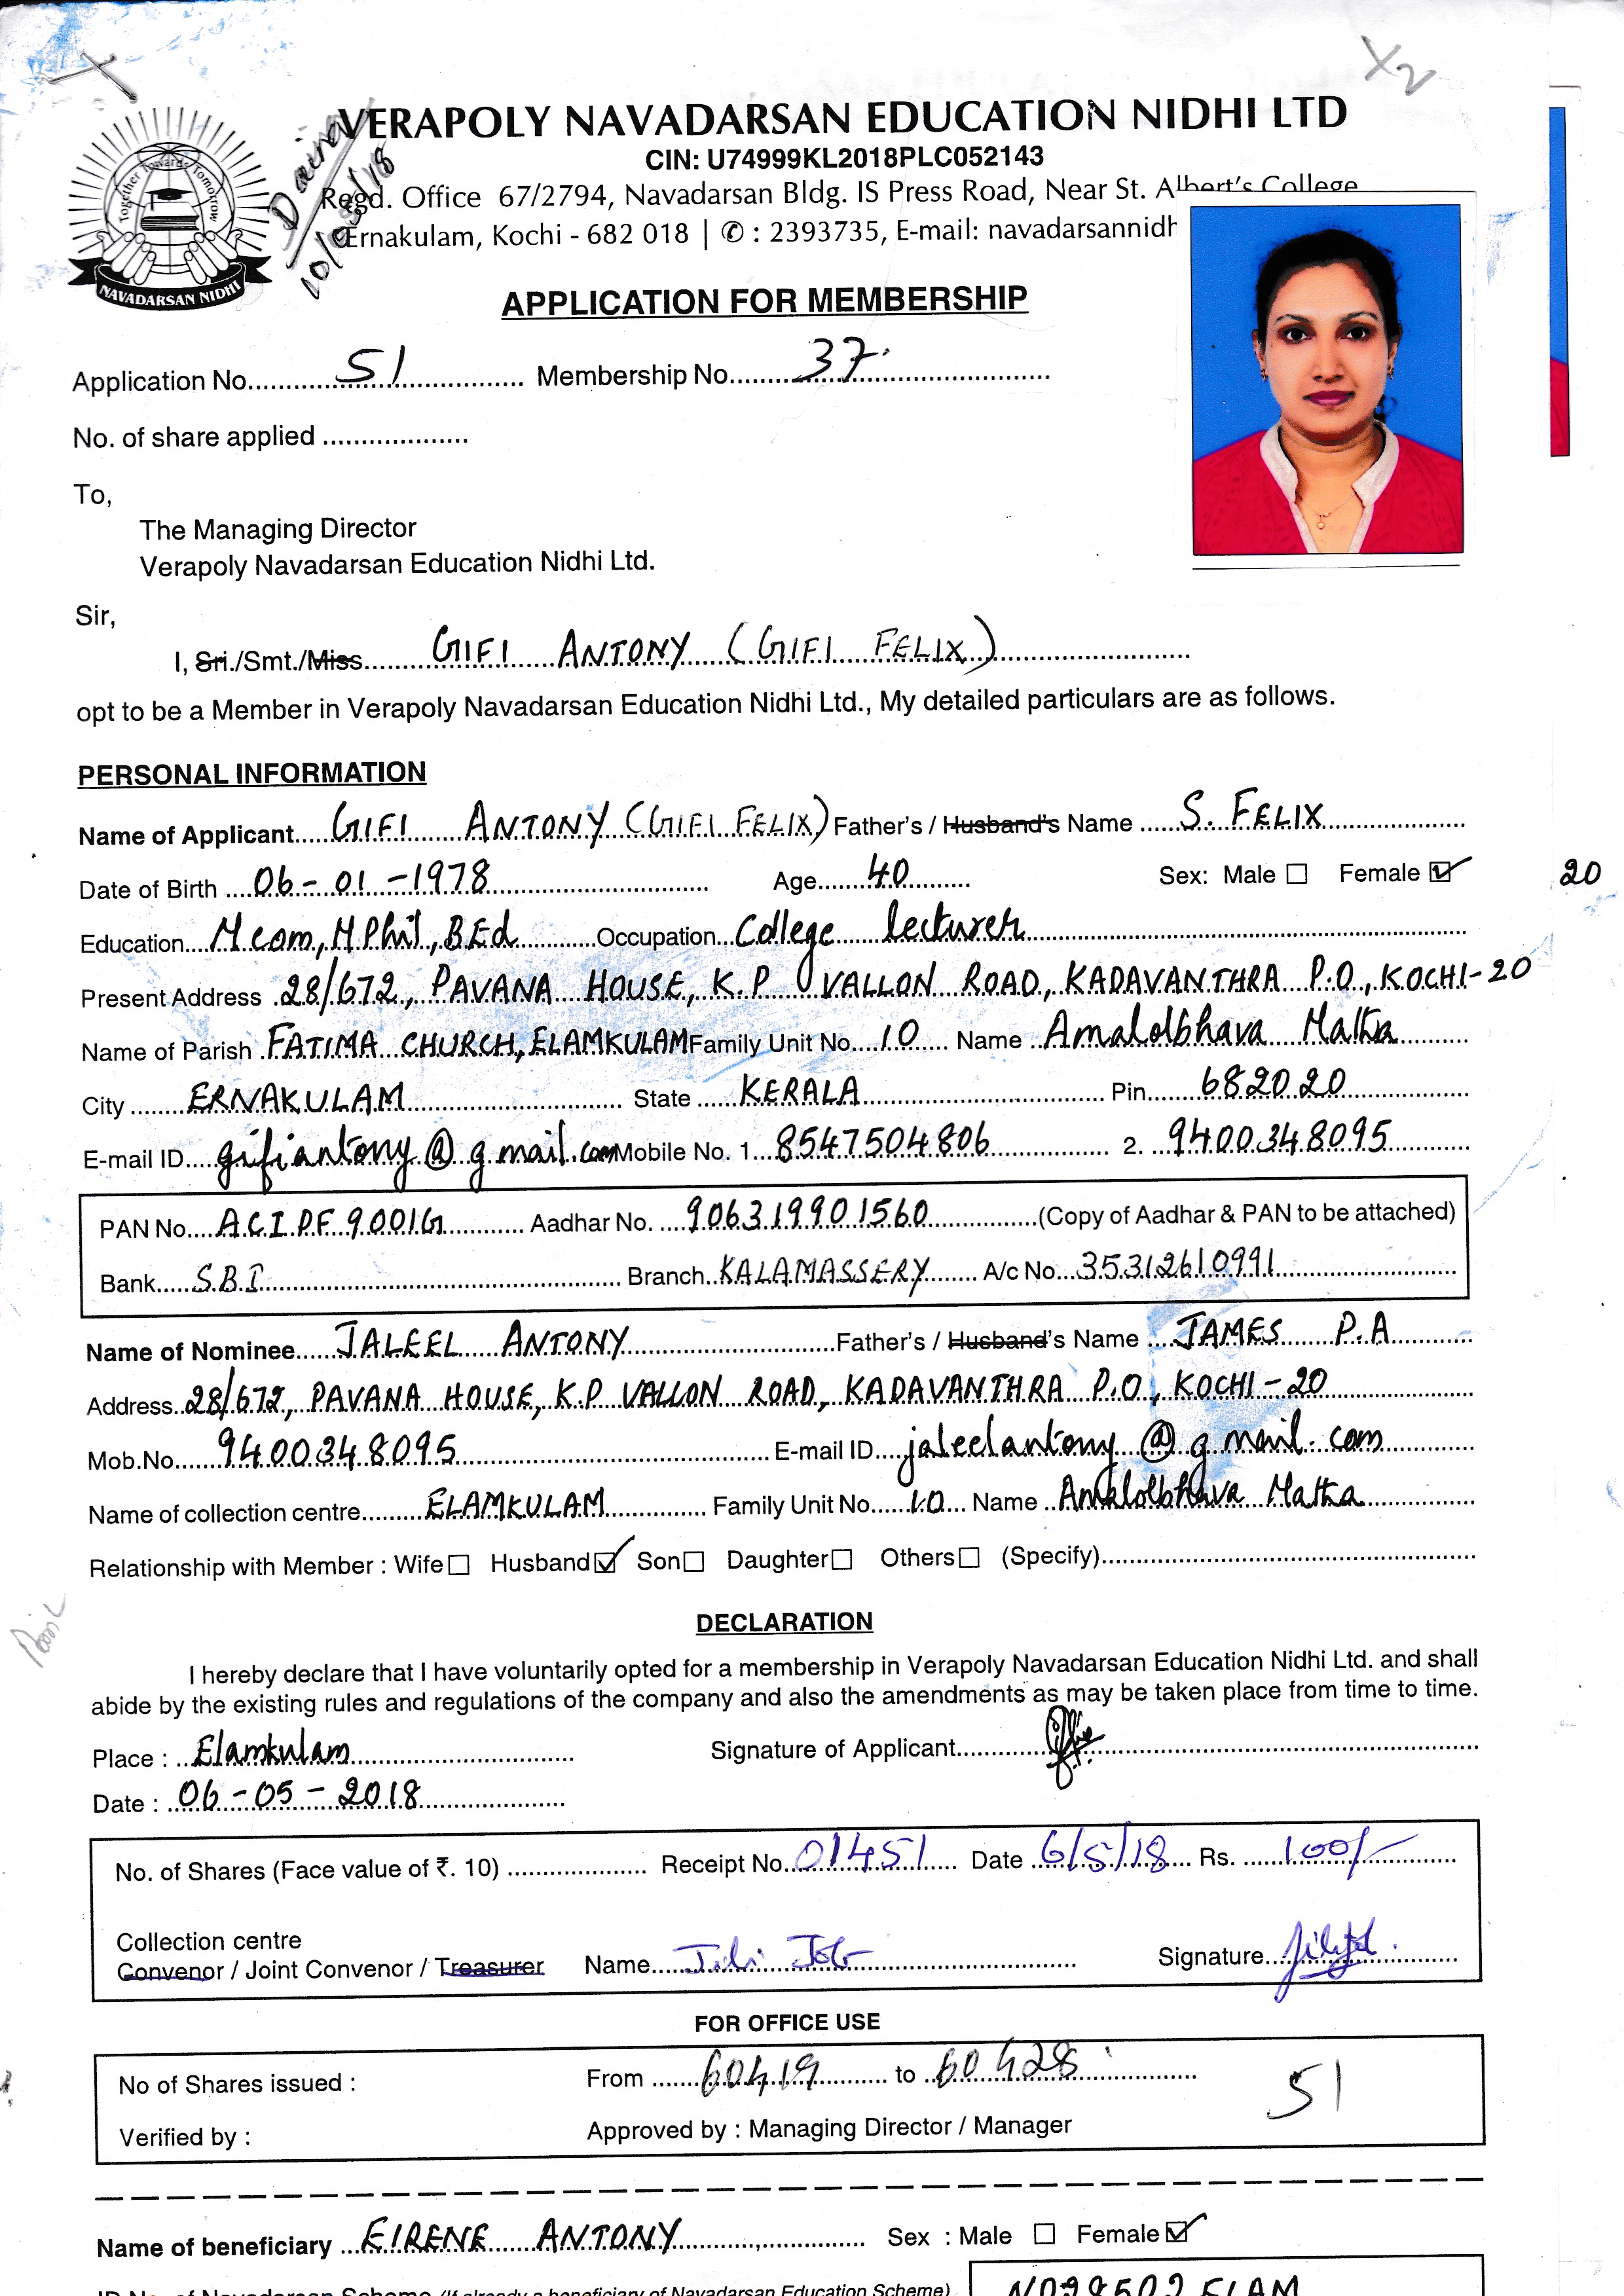 X2
VERAPOLY NAVADARSAN EDUCATION NIDHI LTD
CIN: U74999KL2018PLC052143
Regd. Office 67/2794, Navadarsan Bldg. IS Press Road, Near St. Albert's College
Ernakulam, Kochi - 682 018 | ✆ : 2393735, E-mail: navadarsannidh
Together Towards Tomorrow
NAVADARSAN NIDHI
APPLICATION FOR MEMBERSHIP
Application No. 51 Membership No. 37
No. of share applied
To,
The Managing Director
Verapoly Navadarsan Education Nidhi Ltd.
Sir,
I, Sri./Smt./Miss GIFI ANTONY (GIFI FELIX)
opt to be a Member in Verapoly Navadarsan Education Nidhi Ltd., My detailed particulars are as follows.
PERSONAL INFORMATION
Name of Applicant GIFI ANTONY (GIFI FELIX) Father's / Husband's Name S. FELIX
Date of Birth 06-01-1978 Age 40 Sex: Male ☐ Female ☑ 20
Education Mcom, MPhil, BEd Occupation College lecturer
Present Address 28/672, PAVANA HOUSE, K.P VALLON ROAD, KADAVANTHRA P.O, KOCHI-20
Name of Parish FATIMA CHURCH, ELAMKULAM Family Unit No. 10 Name Amalolbhava Matha
City ERNAKULAM State KERALA Pin 682020
E-mail ID gifiantony@gmail.com Mobile No. 1 8547504806 2. 9400348095
PAN No. ACIPF9001G Aadhar No. 906319901560 (Copy of Aadhar & PAN to be attached)
Bank S.B.I Branch KALAMASSERY A/c No. 35312610991
Name of Nominee JALEEL ANTONY Father's / Husband's Name JAMES P.A
Address 28/672, PAVANA HOUSE, K.P VALLON ROAD, KADAVANTHRA P.O, KOCHI-20
Mob.No. 9400348095 E-mail ID jaleelantony@gmail.com
Name of collection centre ELAMKULAM Family Unit No. 10 Name Amalolbhava Matha
Relationship with Member : Wife ☐ Husband ☑ Son ☐ Daughter ☐ Others ☐ (Specify)
DECLARATION
I hereby declare that I have voluntarily opted for a membership in Verapoly Navadarsan Education Nidhi Ltd. and shall
abide by the existing rules and regulations of the company and also the amendments as may be taken place from time to time.
Place : Elamkulam Signature of Applicant
Date : 06-05-2018
No. of Shares (Face value of ₹. 10) Receipt No. 01451 Date 6/5/18 Rs. 100/-
Collection centre
Convenor / Joint Convenor / Treasurer Name Jili Job Signature
FOR OFFICE USE
No of Shares issued : From 60419 to 60428 51
Verified by : Approved by : Managing Director / Manager
Name of beneficiary EIRENE ANTONY Sex : Male ☐ Female ☑